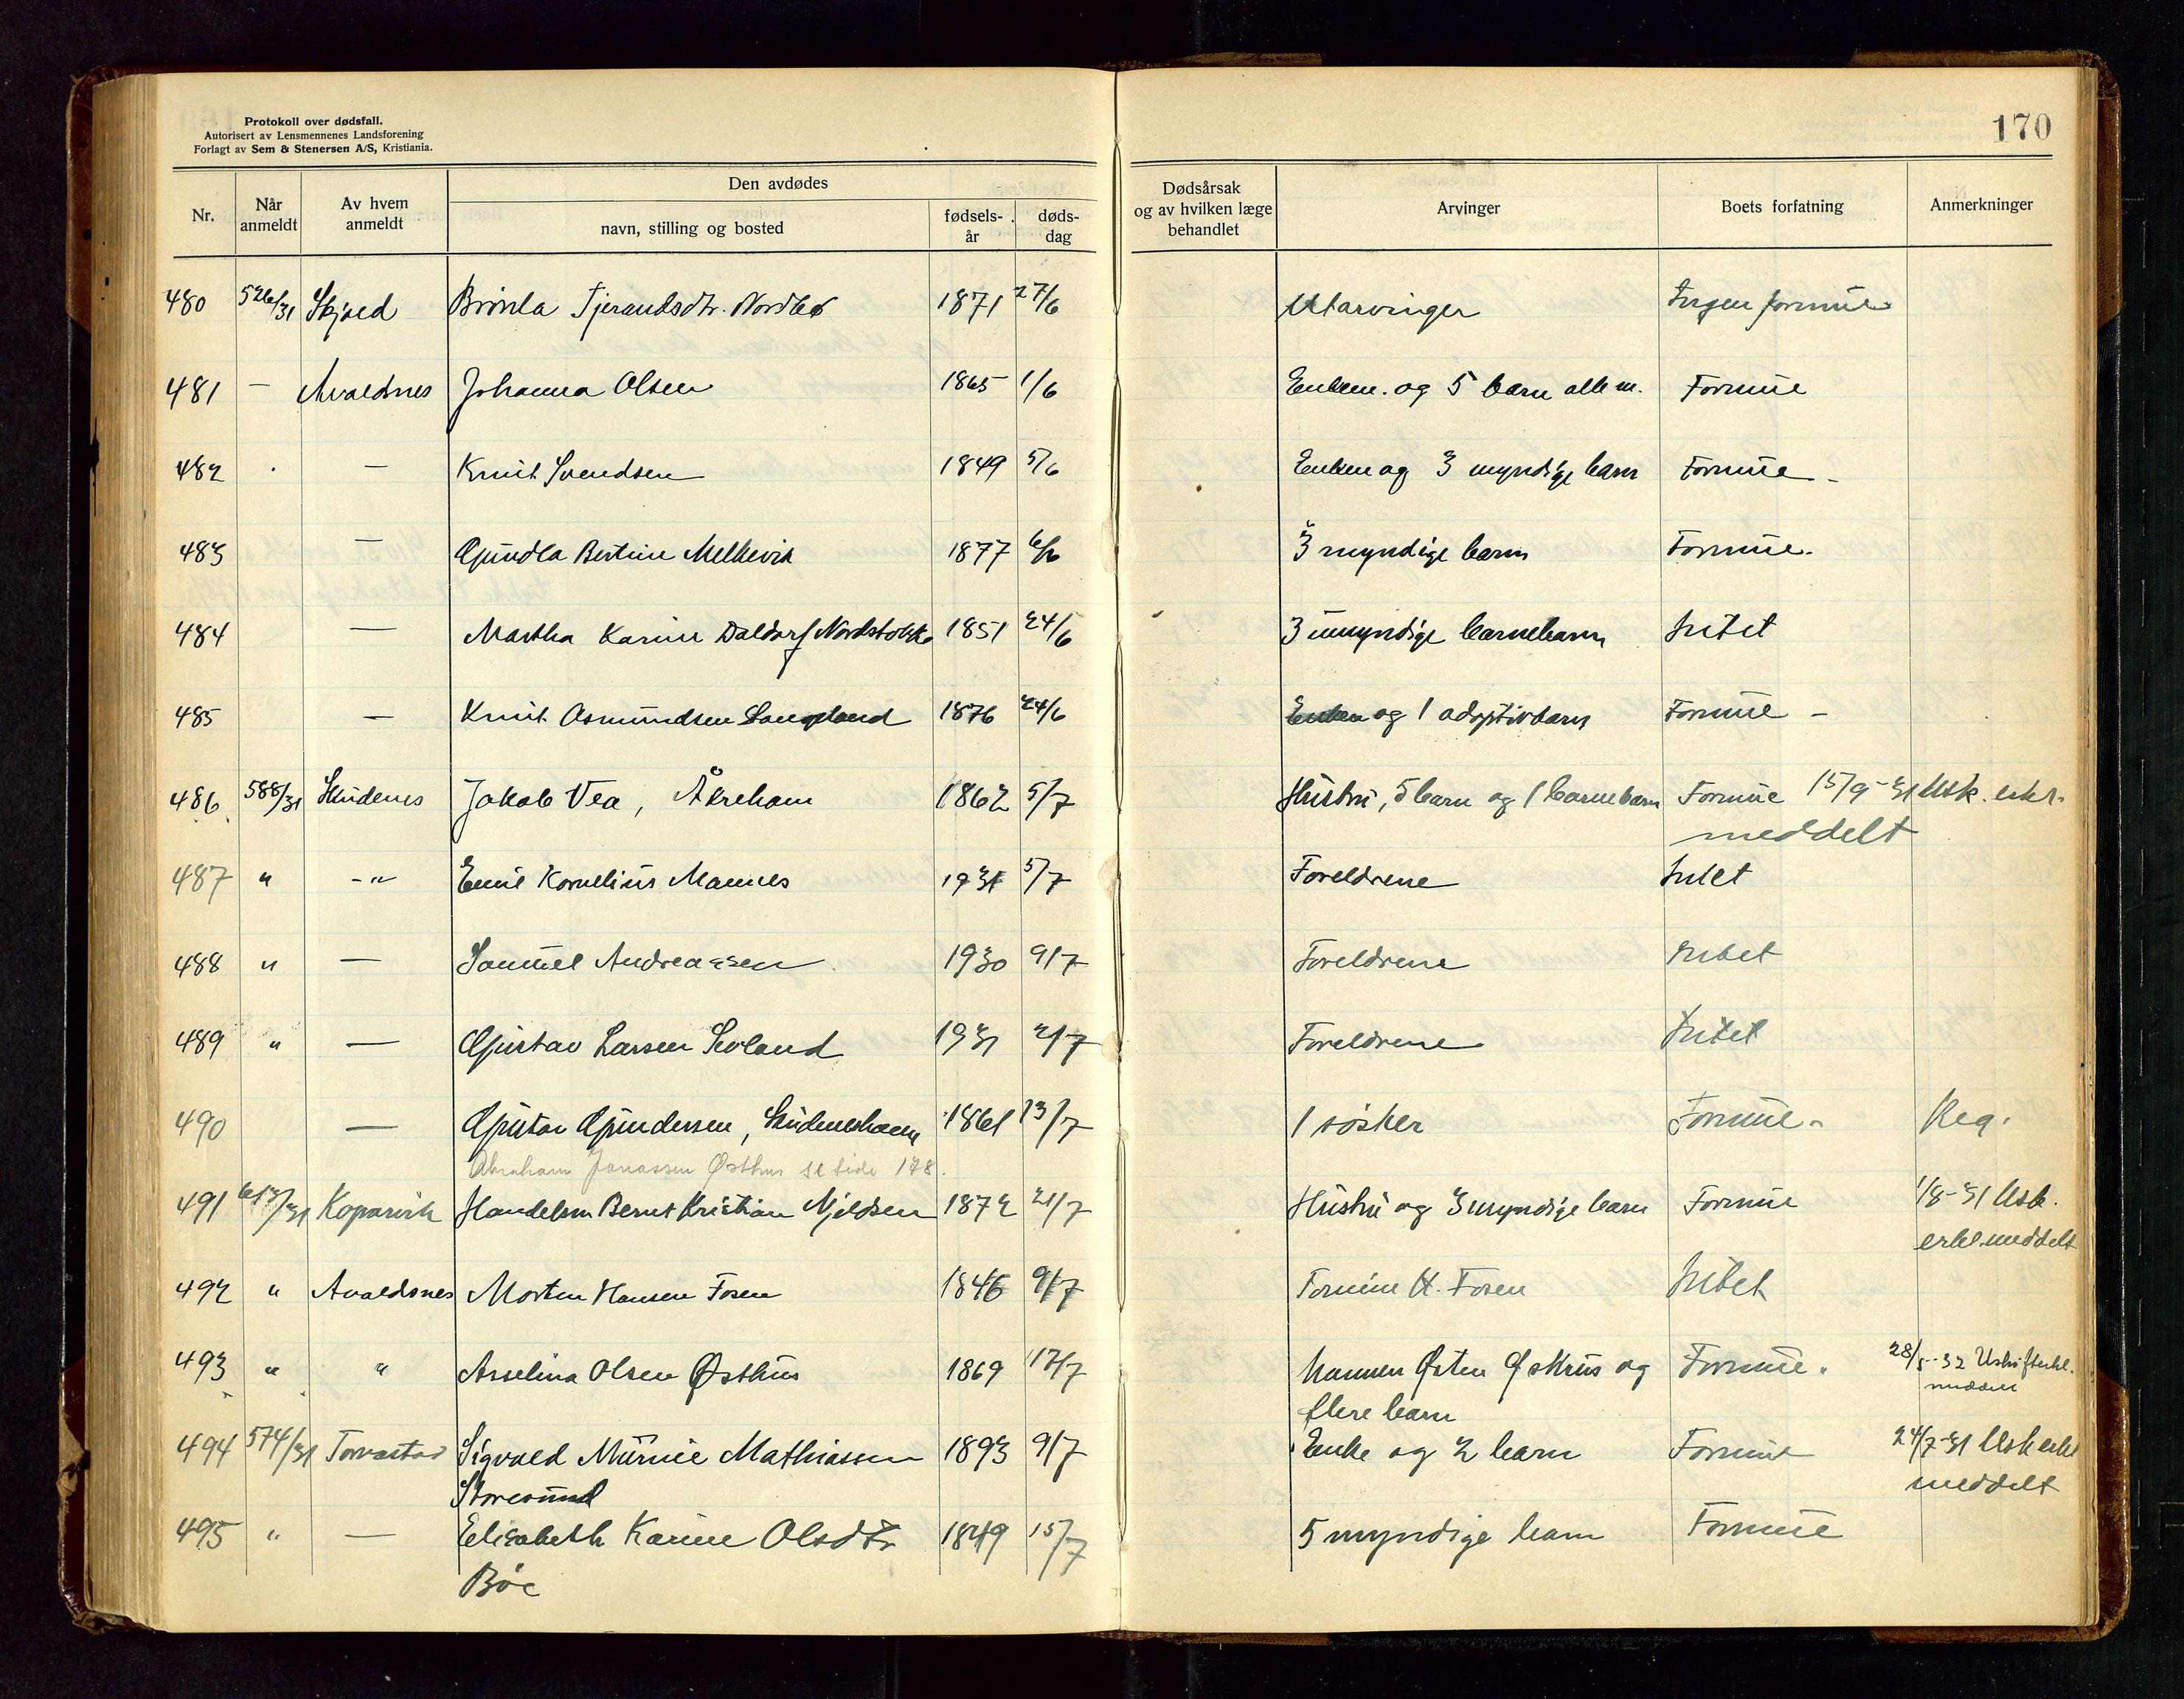 Protokoll over dødsfall.
Autorisert av Lensmennenes Landsforening
Forlagt av Sem & Stenersen A/S, Kristiania.
170
Nr. Når anmeldt Av hvem anmeldt Den avdødes navn, stilling og bosted fødsels-år døds-dag Dødsårsak og av hvilken læge behandlet Arvinger Boets forfatning Anmerkninger
480 526/31 Skjold Tjerandsdtr. Nordbø 1871 27/6 Utarvinger Ingen formue
481 — Avaldsnes Johanna Olsen 1865 1/6 Enkem. og 5 barn alle m. Formue
482 — Knut Svendsen 1849 5/6 Enken og 3 myndige barn Formue -
483 — Gundla Bertine Melkevik 1877 6/6 3 myndige barn Formue.
484 — Martha Karine Daldorf Nordstokke 1851 24/6 3 umyndige barnebarn Intet
485 — Knut Asmundsen Langeland 1876 24/6 Enken og 1 adoptivbarn Formue -
486 588/31 Skudenes Jakob Vea, Åkreham 1862 5/7 Hustru, 5 barn og 1 barnebarn Formue 15/9-31 Usk. erkl.
meddelt
487 " -"- Emil Kornelius Mannes 1931 5/7 Foreldrene Intet
488 " — Samuel Andreassen 1930 9/7 Foreldrene Intet
489 " — Gustav Larsen Sevland 1931 2/7 Foreldrene Intet
490 — Gustav Gundersen, Skudeneshavn 1861 13/7 1 søsken Formue - Reg.
Abraham Jonassen Østhus se side 178.
491 613/31 Kopervik Handelsm Bernt Kristian Njeldsen 1872 21/7 Hustru og 3 myndige barn Formue 1/8-31 Usk.
erkl. meddelt
492 " Avaldsnes Morten Hansen Fosen 1846 9/7 H. Fosen Intet
493 " " Anselina Olsen Østhus 1869 17/7 Mannen Østen Østhus og Formue. 28/5-32 Uskifteerkl.
meddelt
flere barn
494 574/31 Torvastad Sigvald Mathiassen 1893 9/7 Enke og 2 barn Formue 24/7-31 Usk erkl
Storesund
meddelt
495 " — Elisabeth Karine Olsdtr 1849 15/7 5 myndige barn Formue
Bøe